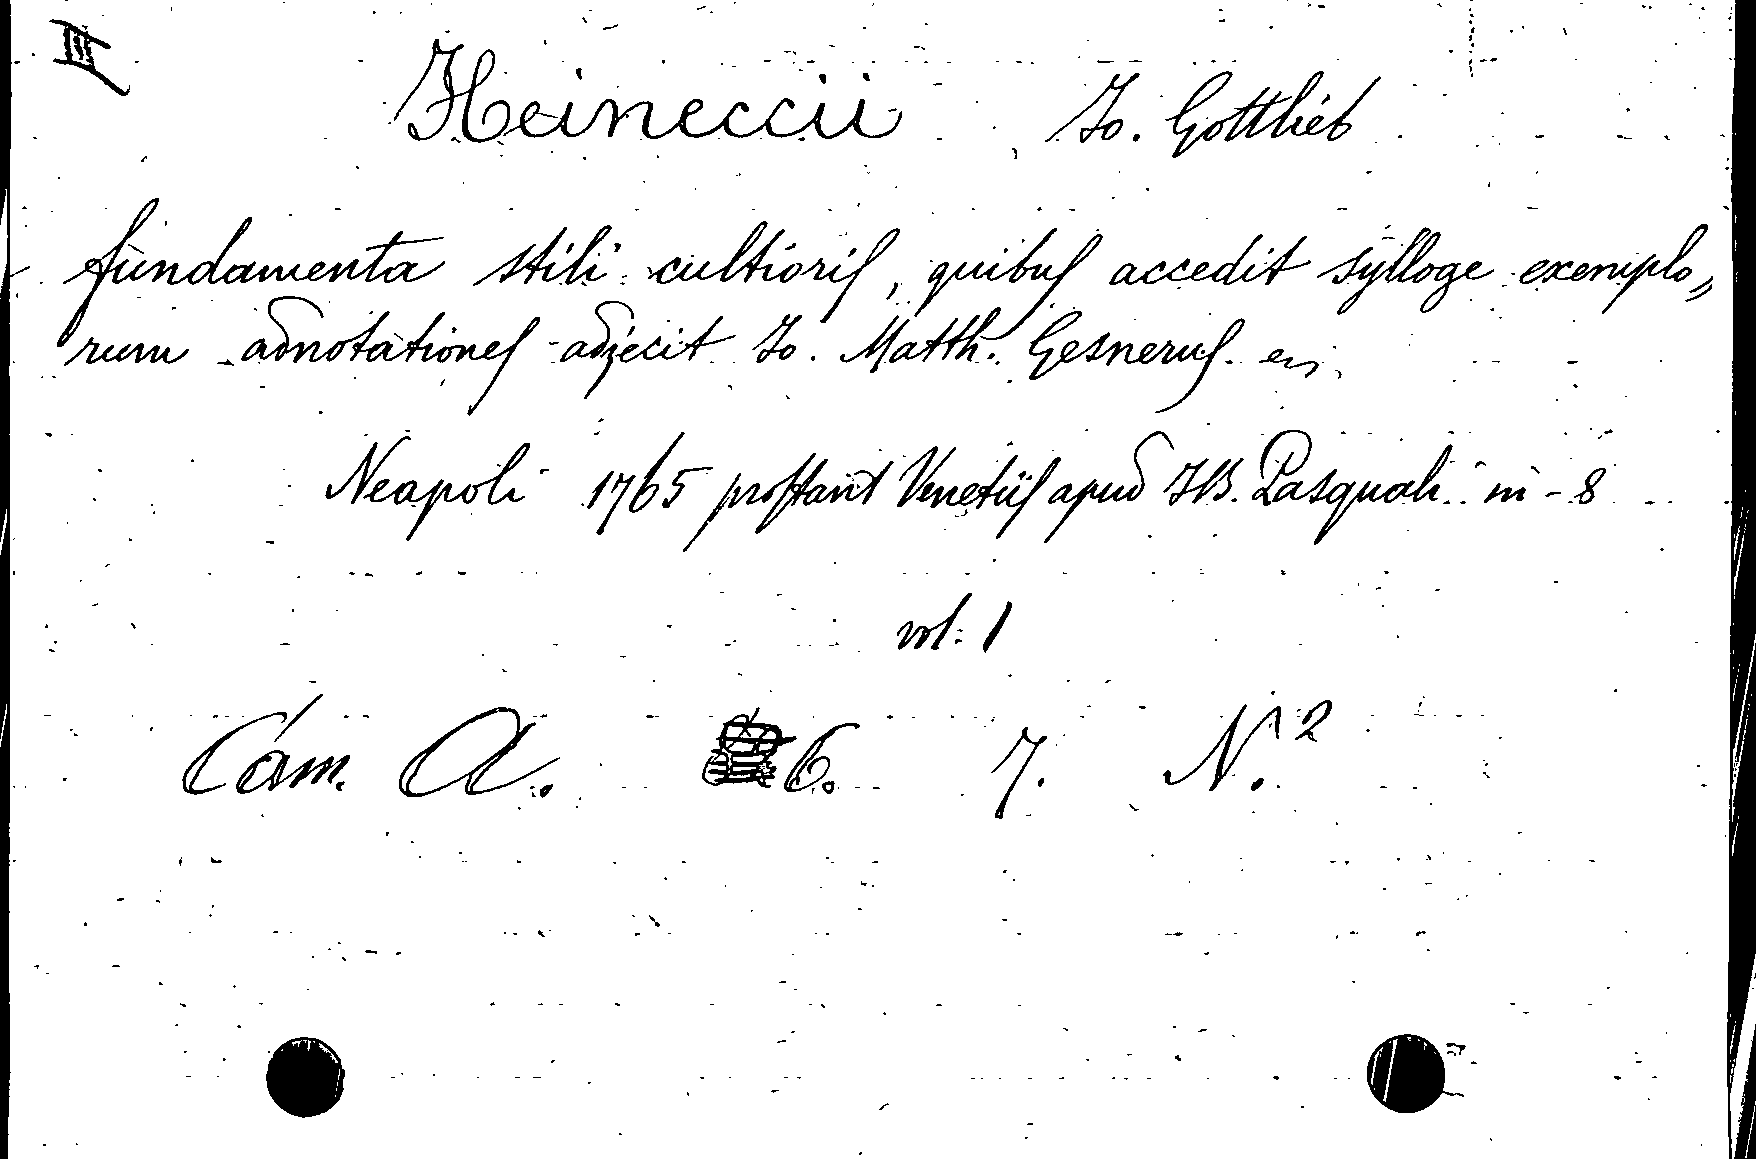 III
Heineccii Jo. Gottlieb
fundamenta stili cultioris, quibus accedit sylloge exemplo„
rum adnotationes adjecit Jo. Matth. Gesnerus
Neapoli 1765 prostant Venetiis apud JB. Pasquali in-8
vol. 1
Cam. A. 6. 7. N.2